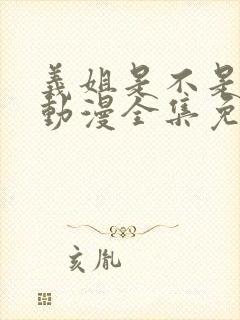 義姐是不是
動漫全集免
亥胤